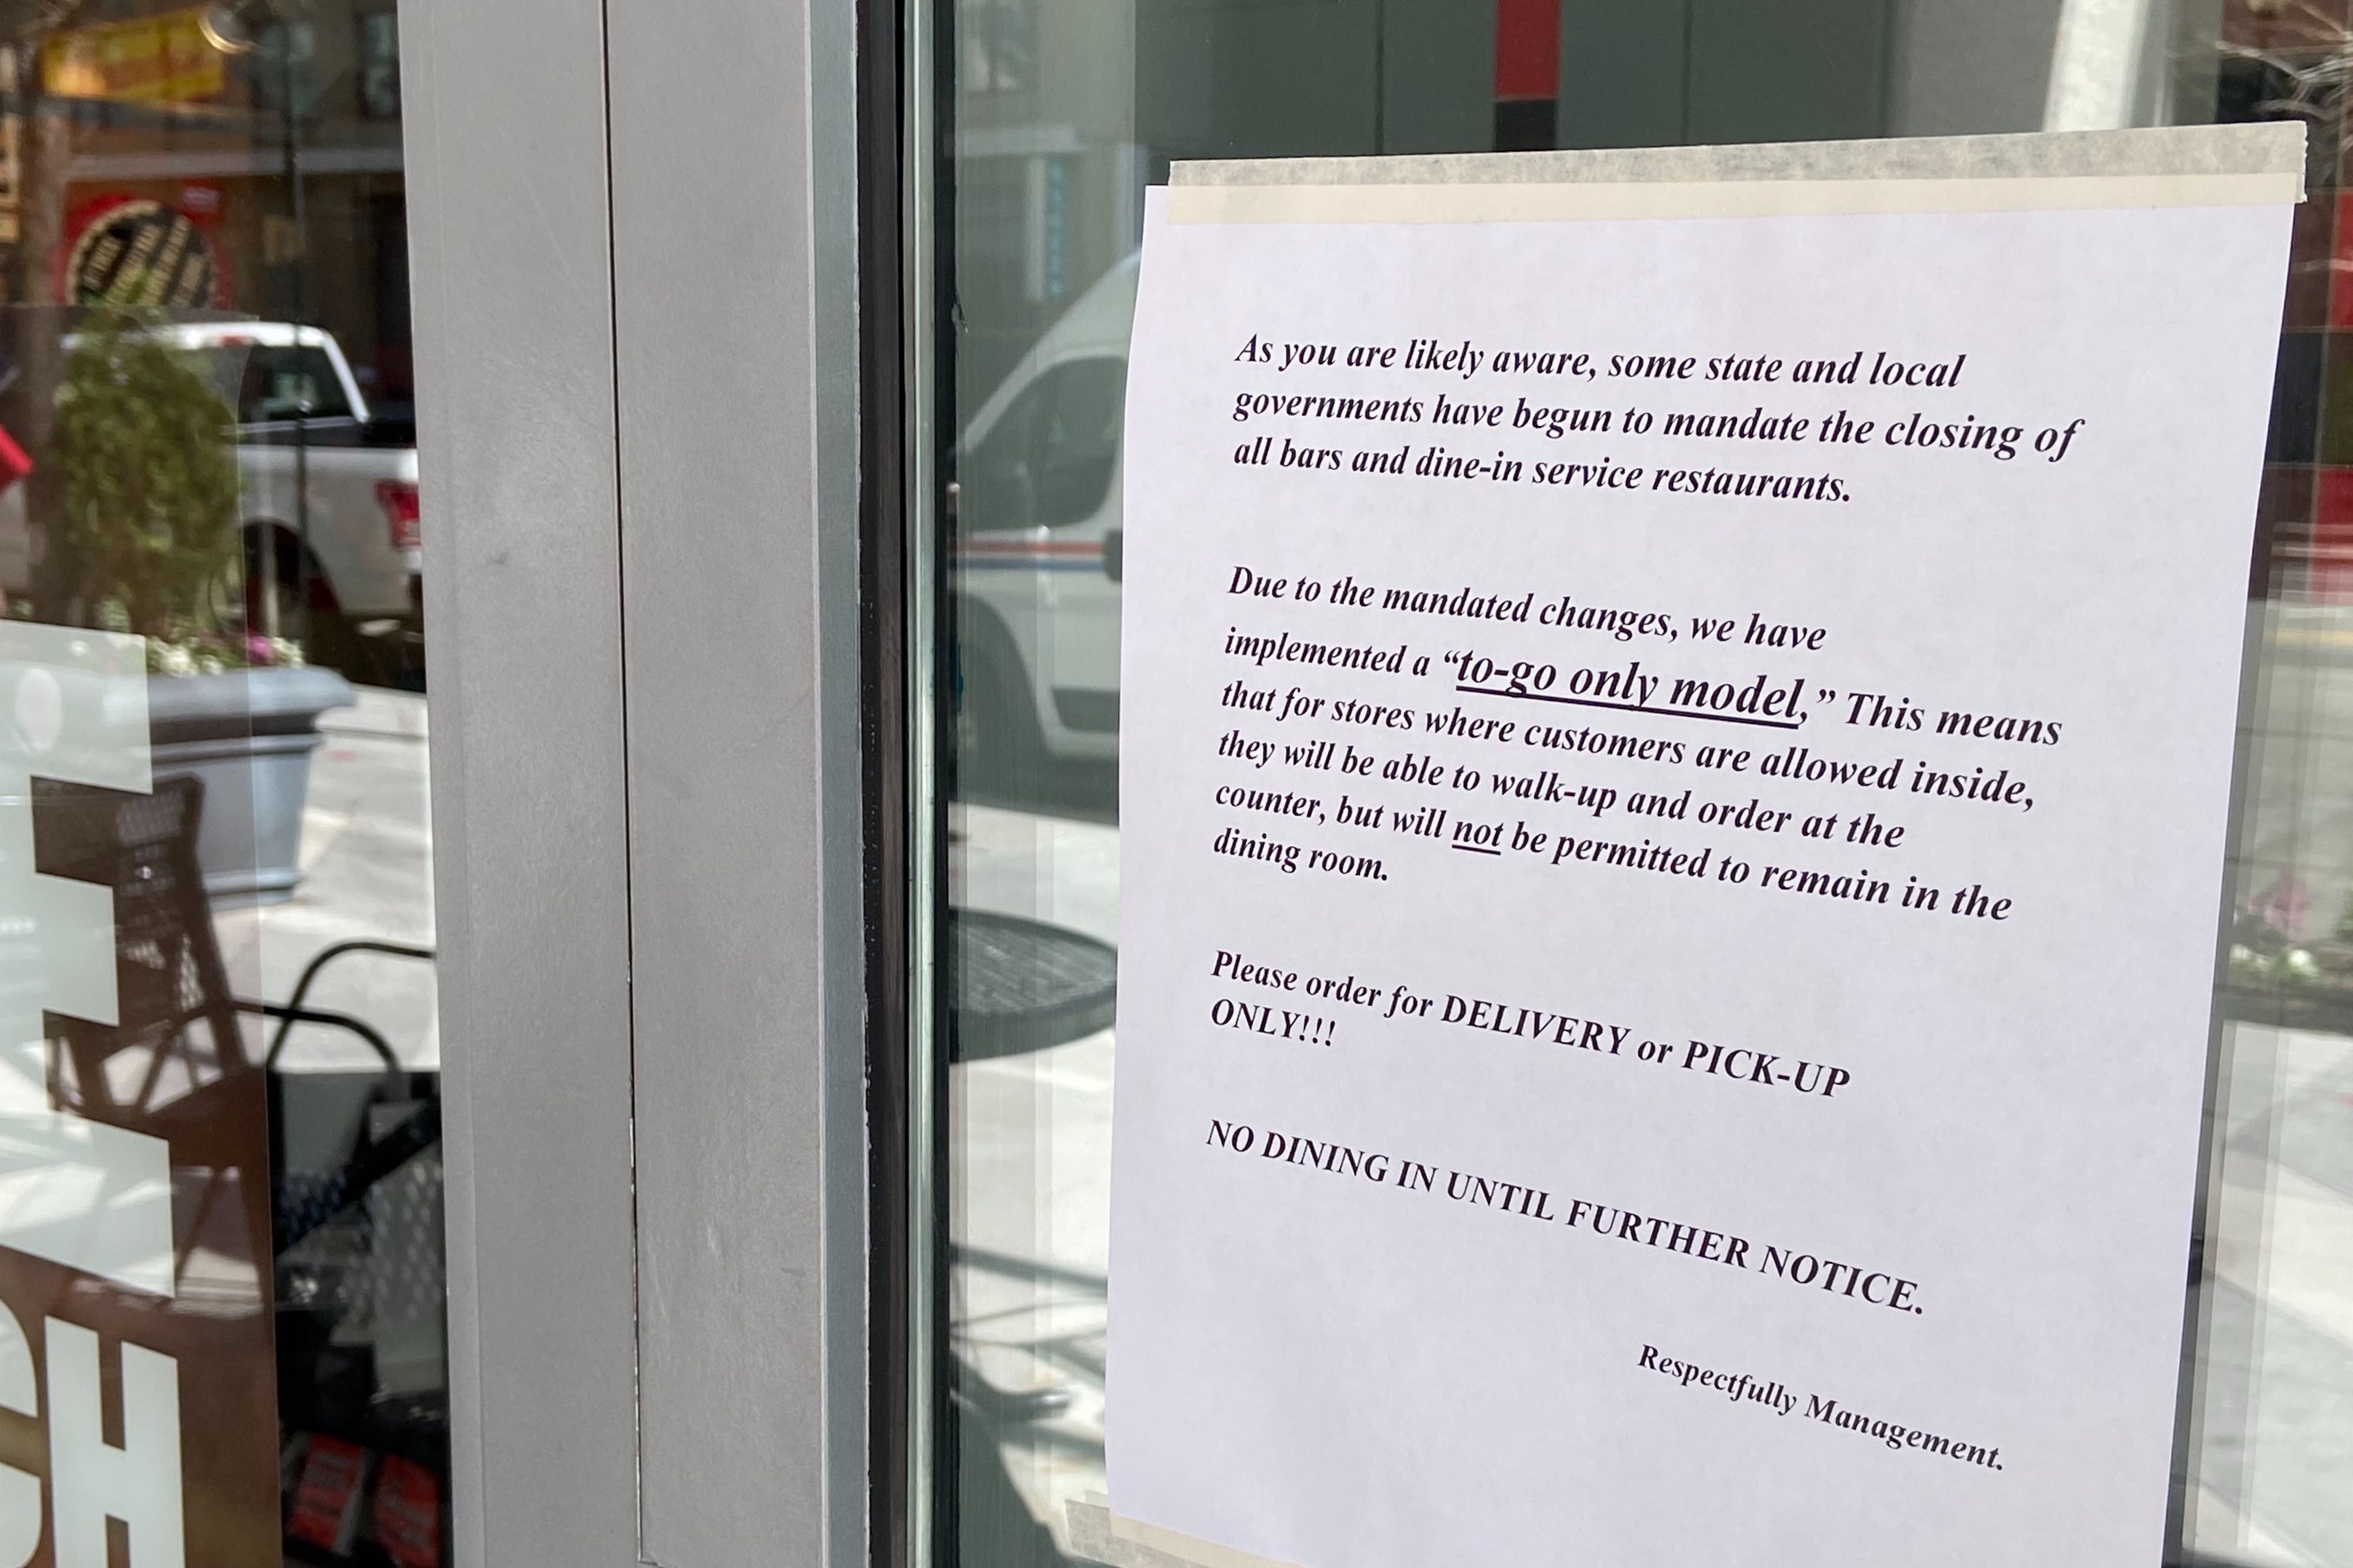 As you are likely aware, some state and local
governments have begun to mandate the closing of
all bars and dine-in service restaurants.
Due to the mandated changes, we have
implemented a “to-go only model,” This means
that for stores where customers are allowed inside,
they will be able to walk-up and order at the
counter, but will not be permitted to remain in the
dining room.
Please order for DELIVERY or PICK-UP
ONLY!!!
NO DINING IN UNTIL FURTHER NOTICE.
Respectfully Management.